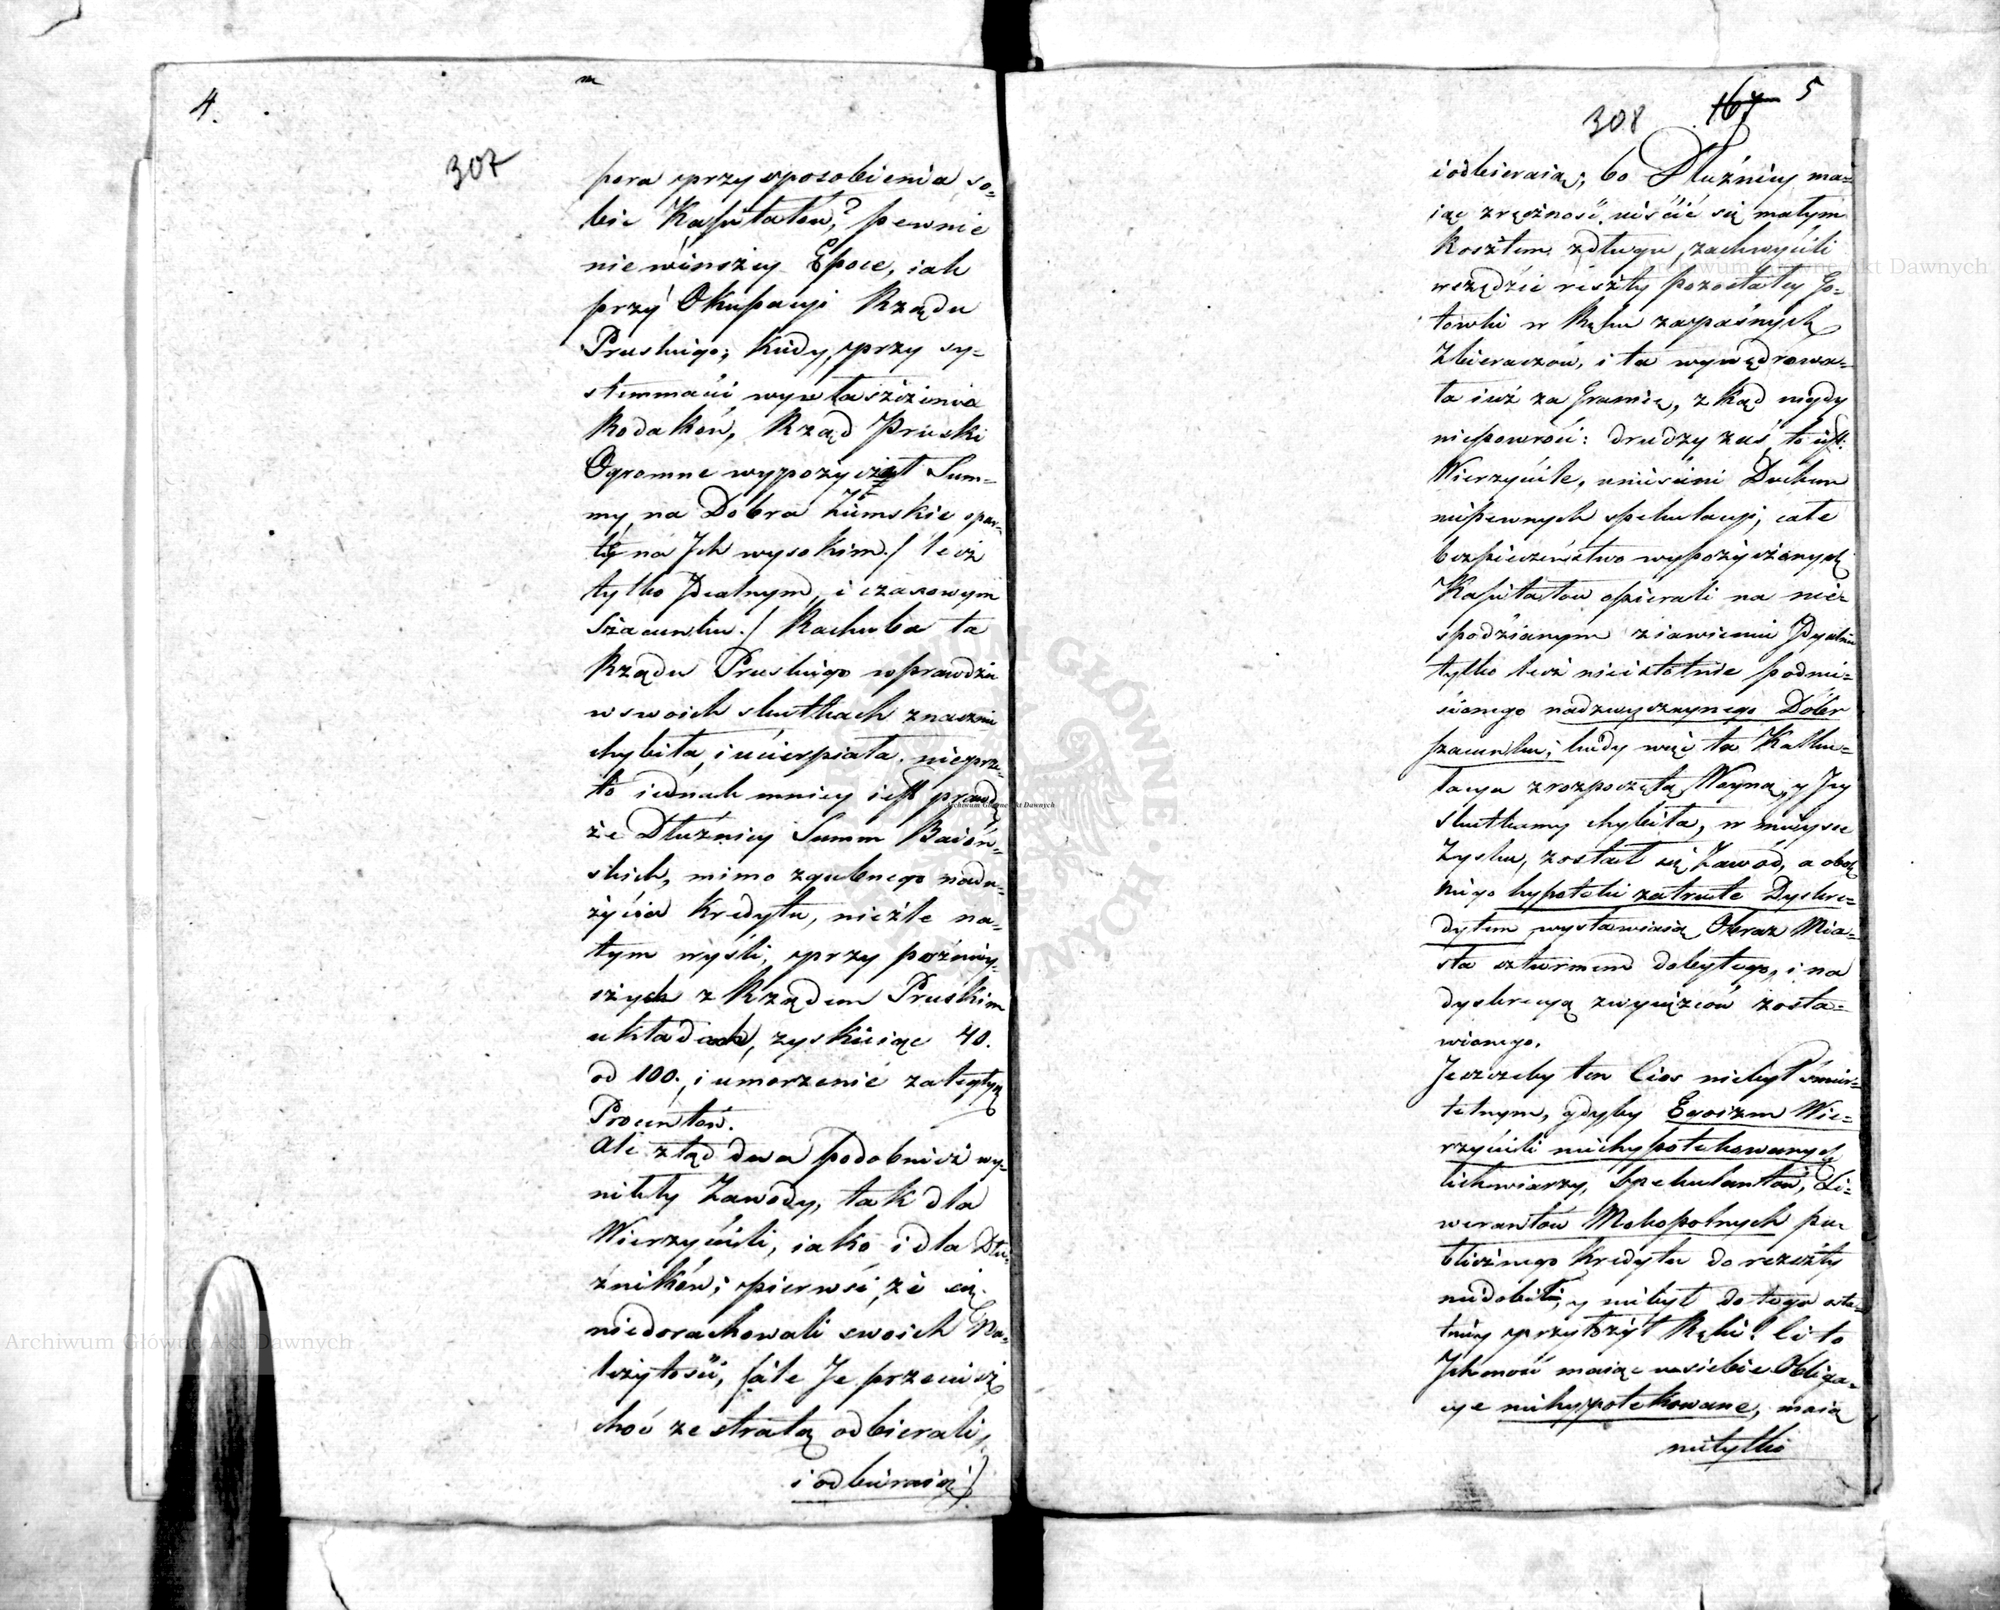 4.
307
pora przysposobienia so-
bie Kapitałów? pewnie
niewinszey Epoce, iak
przy Okupacyi Rządu
Pruskiego; kiedy, przy sy-
stemmacie wywłaszczenia
Rodaków, Rząd Pruski
Ogromne wypożyczał Sum-
my, na Dobra Ziemskie opar-
te na Jch wysokim / lecz
tylko Jdealnym, i czasowym
Szacunku. / Rachuba ta
Rządu Pruskiego wprawdzie
w swoich skutkach znacznie
chybiła, i ucierpiała. nieprze-
to iednak mniey iest prawdą
że Dłużnicy Summ Baioń-
skich, mimo zgubnego nadu-
życia kredytu, nieźle na-
tym wyśli, przy poźniey-
szych z Rządem Pruskim
układach, zyskuiąc 40.
od 100., i umorzenie zaległych
Procentów.
Ale ztąd dwa podobnież wy-
nikły Zawody, tak dla
Wierzycieli, iako i dla Dłu-
żników; pierwsi, że się
niedorachowali swoich Na-
leżytości, /ale Je przecież
choć ze stratą odbierali,
i odbieraią /
308 167 5
i odbieraią; bo Dłużnicy ma-
iąc zręczność uiścić się małym
kosztem z długu, zachwycili
wszędzie reszty pozostałey Go-
tówki w Ręku zapaśnych
Zbieraczów, i ta wywędrowa-
ła iuż za Granicę, z kąd nigdy
niepowróci: drudzy zaś, to iest:
Wierzyciele, uniesieni Duchem
niepewnych spekulacyi, całe
bezpieczeństwo wypożyczonych
Kapitałów opierali na nie-
spodzianym ziawieniu Jdealnie
tylko lecz nieistotnie podnie-
sionego nadzwyczaynego Dóbr
szacunku; kiedy więc ta Kalku-
lacya z rozpoczętą Woyną, y Jey
skutkamy chybiła, w mieysce
Zysku, został się Zawód, a obok
niego hypoteki zatrute Dyskre-
dytem wystawiaią Obraz Mia-
sta szturmem dobytego, i na
dyskrecyą zwycięzców zosta-
wionego.
Jeszczeby ten Cios niebył śmier-
telnym, gdyby Egoizm Wie-
rzycieli niehypotekowanych
lichwiarzy, Spekulantów, Li-
werantów Mokopolnych pu-
blicznego kredytu do reszty
niedobił, y niebył do tego osta-
tniey przyłożył Ręki. Ci to
Jchmość maiąc u siebie Obliga-
cye niehypotekowane, maią
nietylko